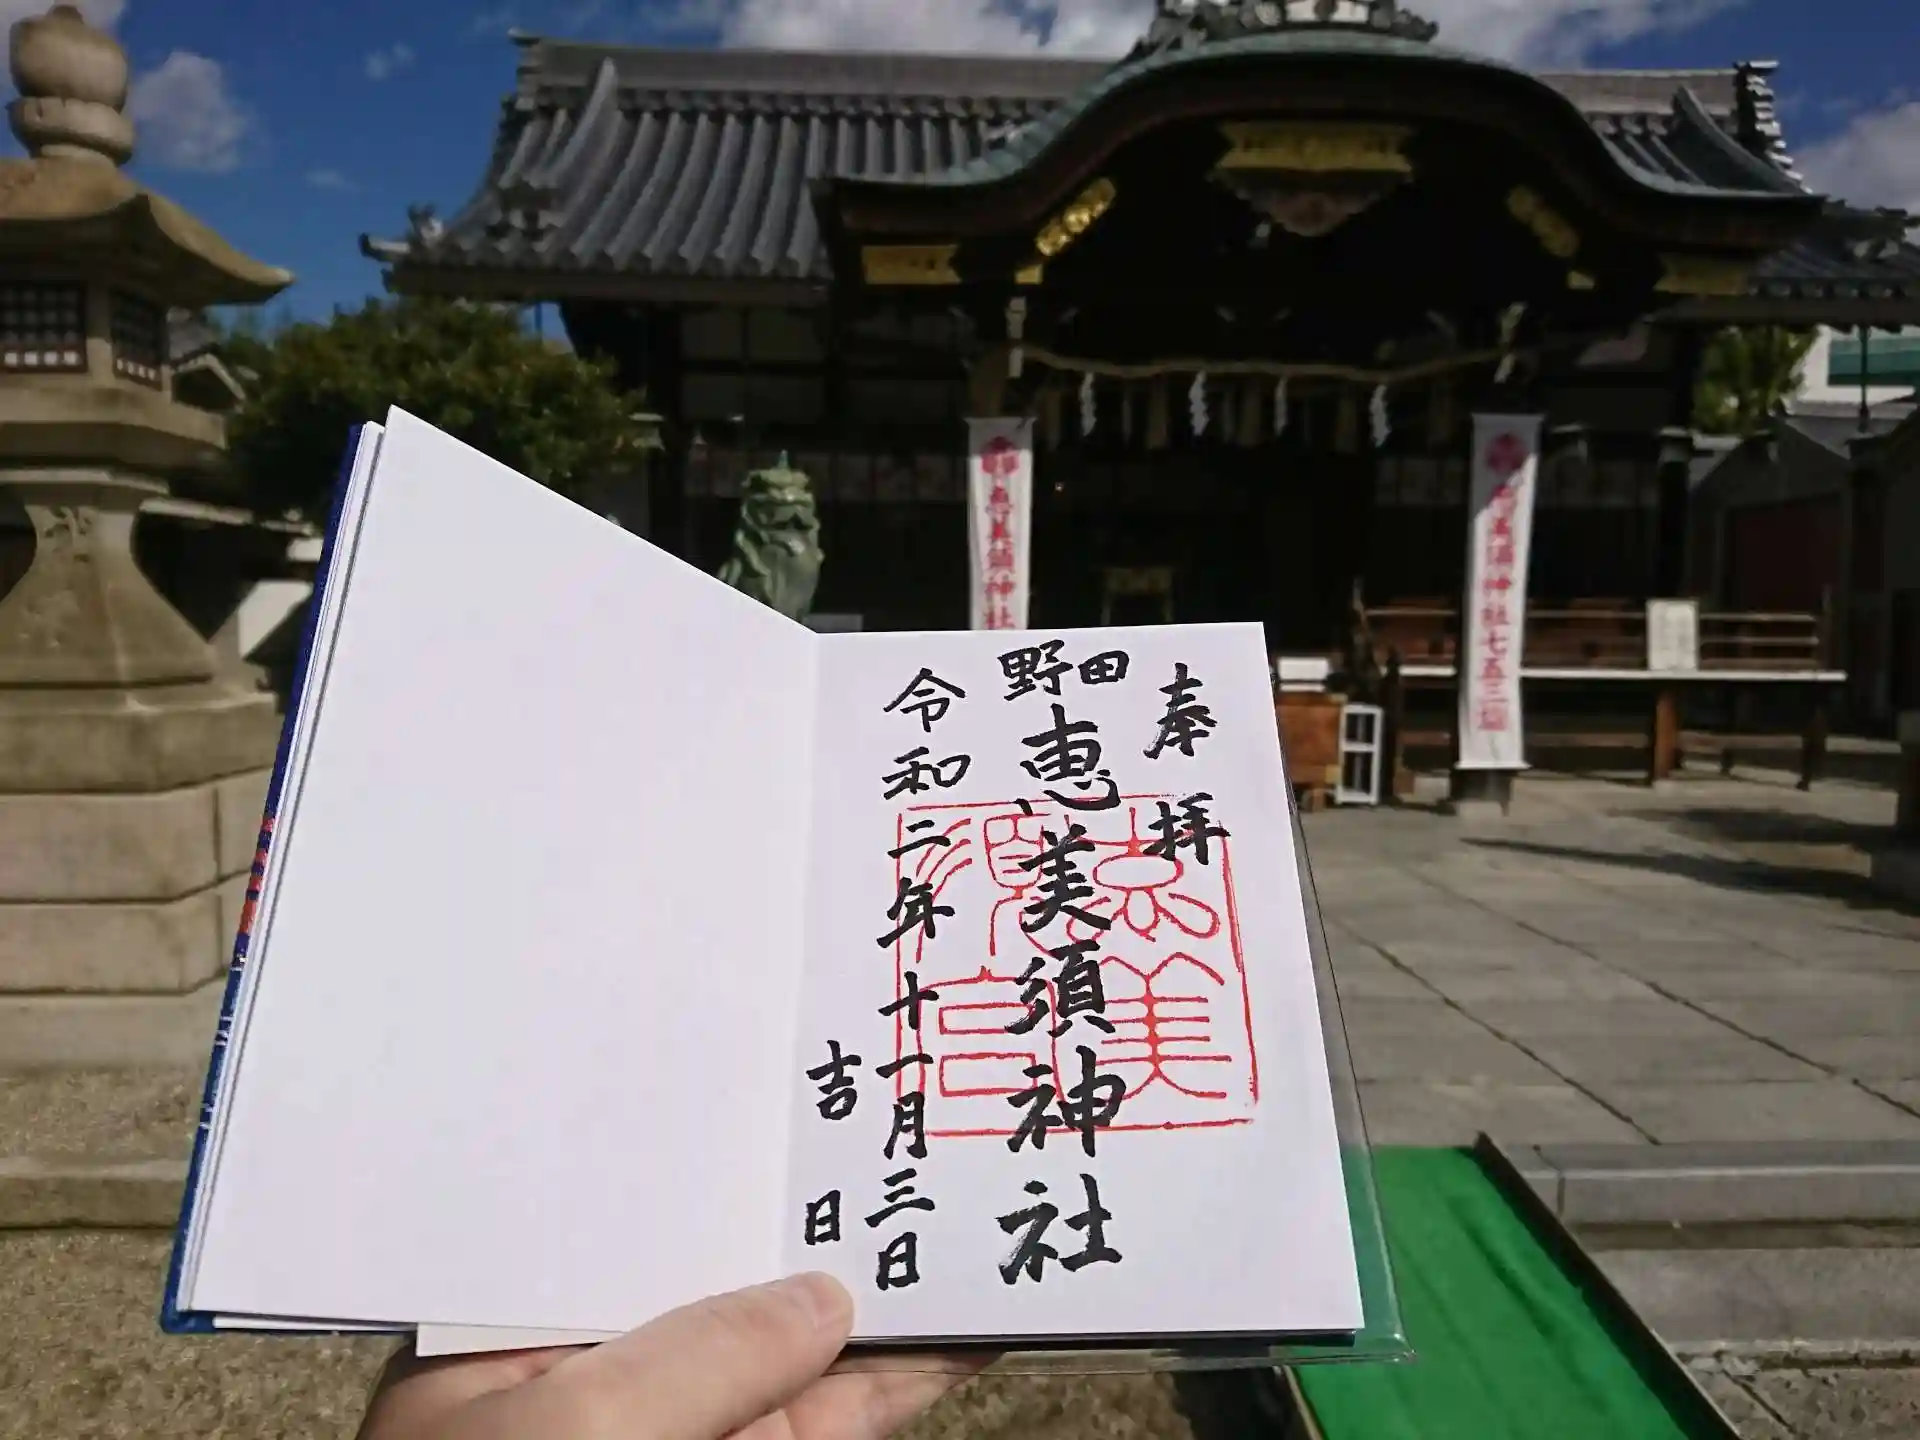 奉拝
野田
恵美須神社
令和二年十一月三日
吉日
恵美須宮
恵美須神社
恵美須神社七五三詣